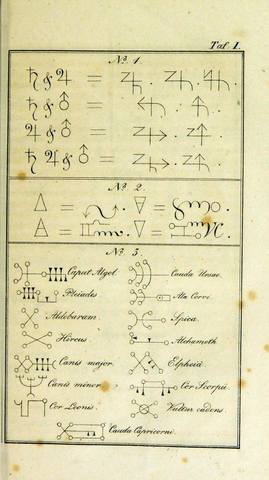 Taf I.
No. 1.
♄ & ♃ =
♄ & ♂ =
♃ & ♂ =
♄ ♃ & ♂ =
No. 2.
No. 3.
Caput Algol. Cauda Ursae.
Pleiades Ala Corvi
Aldebaram. Spica.
Hircus Alchamoth
Canis major. Elpheia.
Canis minor. Cor Scorpii.
Cor Leonis. Vultur cadens
Cauda Capricorni.